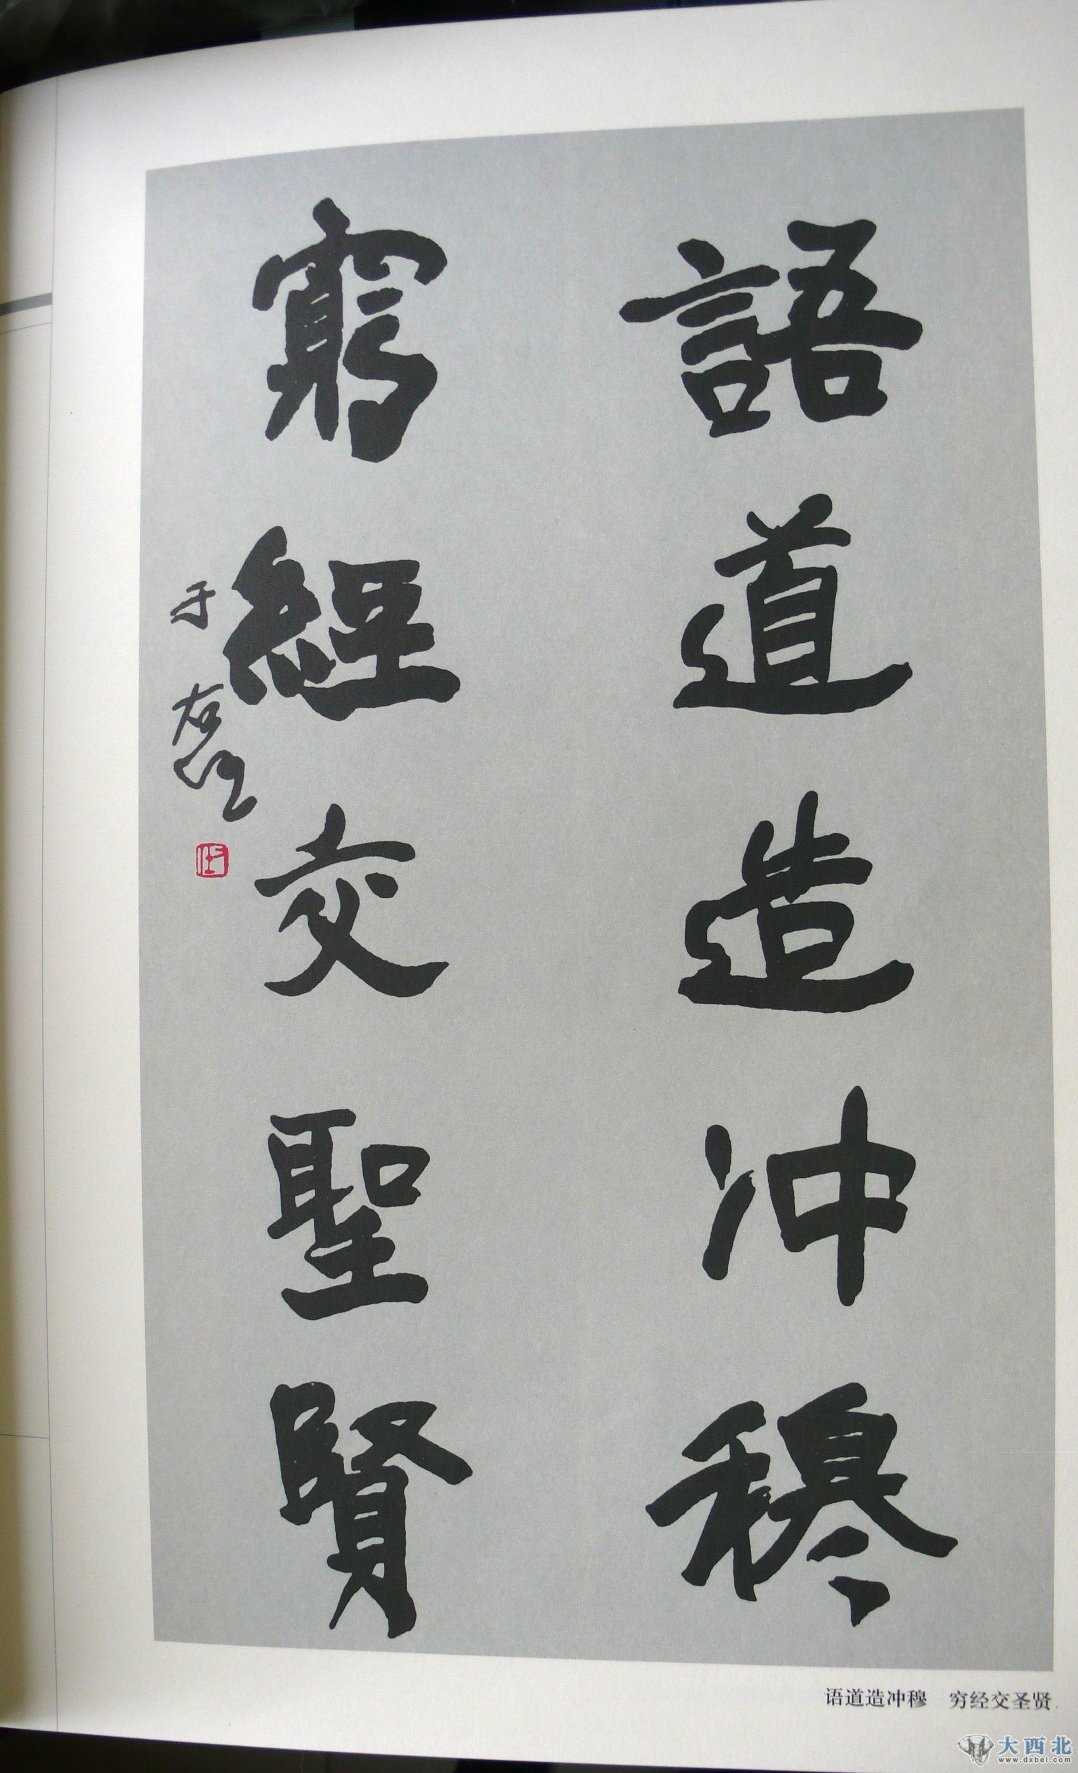 語道造冲穆
窮經交聖賢
于右任
语道造冲穆 穷经交圣贤
大西北
www.dxbei.com